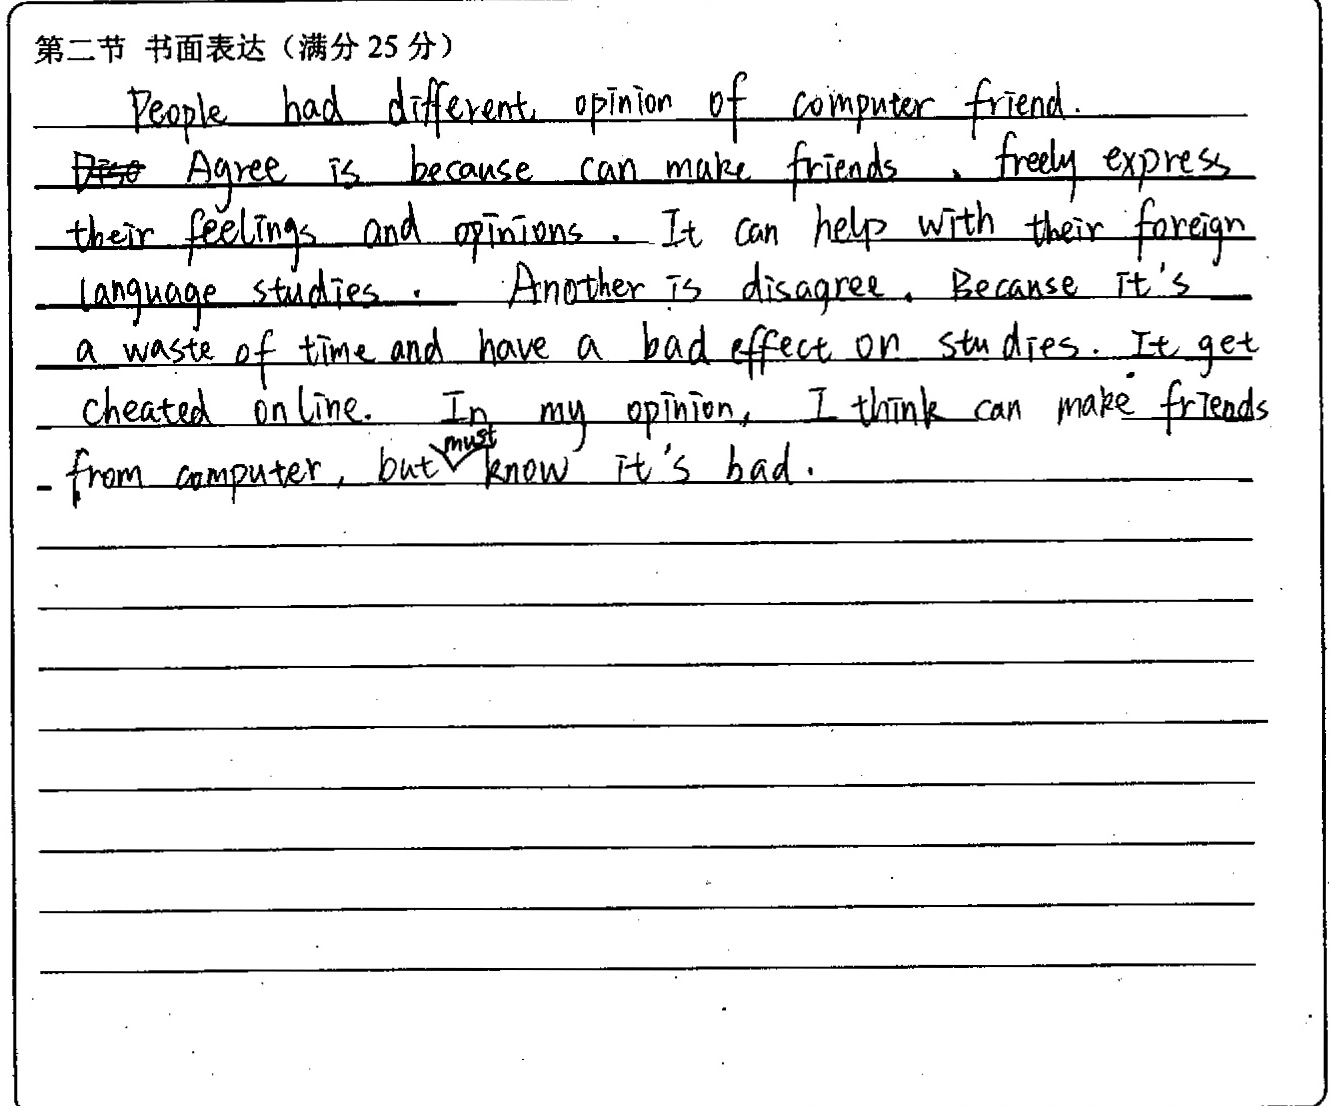 第二节 书面表达（满分 25 分）
People had different opinion of computer friend.
Agree is because can make friends , freely express
their feelings and opinions . It can help with their foreign
language studies . Another is disagree. Because it's
a waste of time and have a bad effect on studies. It get
cheated online. In my opinion, I think can make friends
from computer, but must know it's bad .